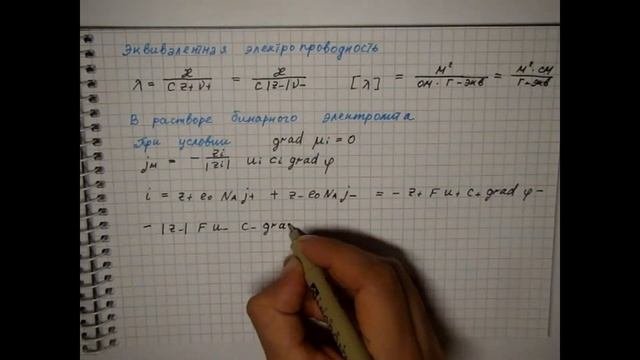 Эквивалентная электропроводность
λ = æ / (c z₊ ν₊) = æ / (c |z₋| ν₋)   [λ] = м² / (ом · г-экв) = м² · см / г-экв
В растворе бинарного электролита
При условии grad μi = 0
jм = − zi / |zi| ui ci grad φ
i = z₊ e₀ NA j₊ + z₋ e₀ NA j₋ = − z₊ F u₊ c₊ grad φ −
− |z₋| F u₋ c₋ gra